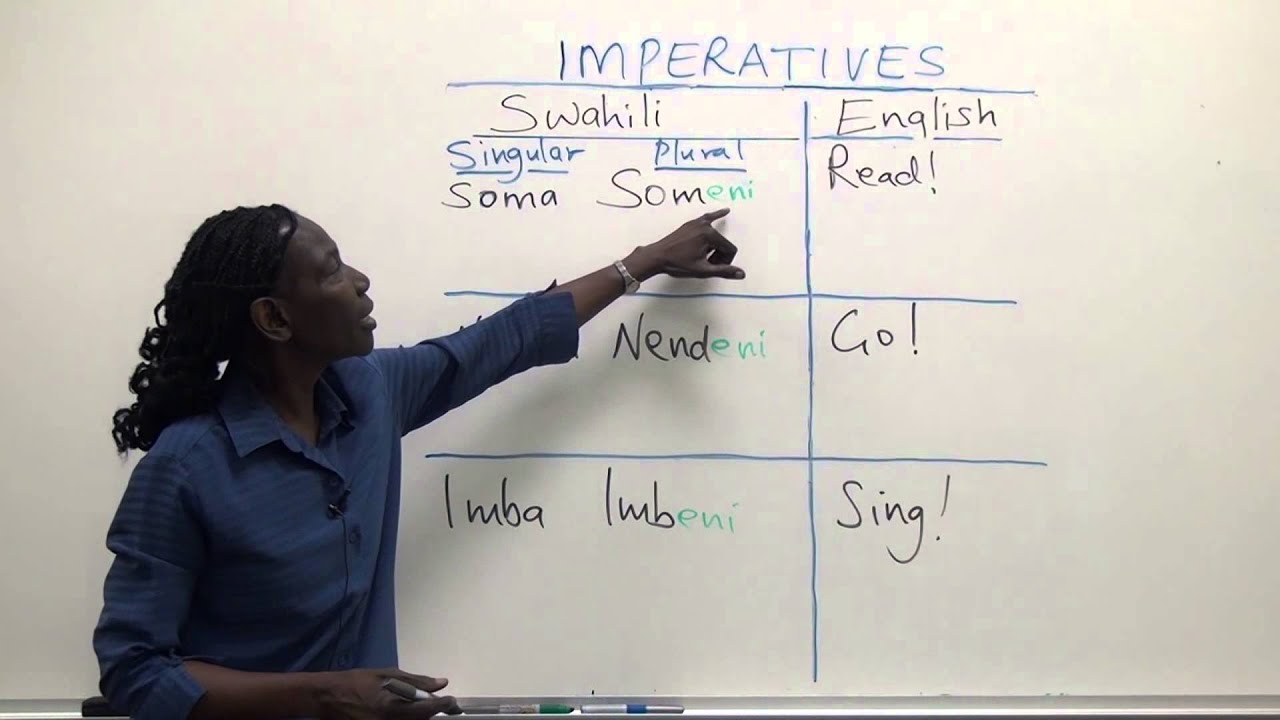 IMPERATIVES
Swahili English
Singular Plural
Soma Someni Read!
Nendeni Go!
Imba Imbeni Sing!